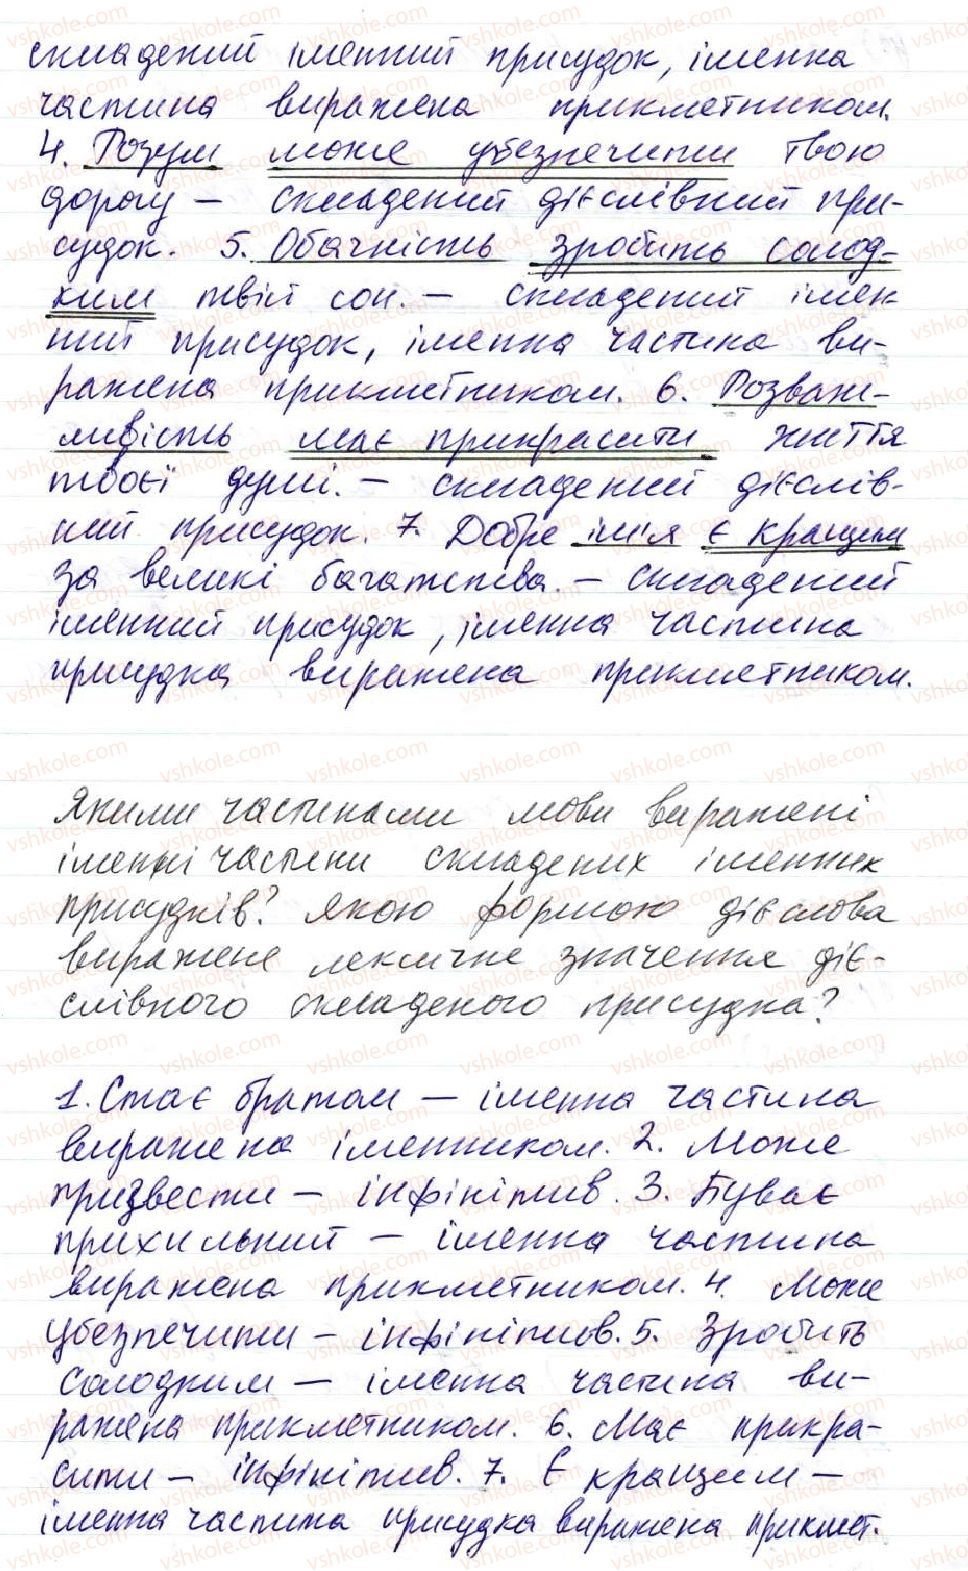 складений іменний присудок, іменна
частина виражена прикметником.
4. Розум може убезпечити твою
дорогу – складений дієслівний при-
судок. 5. Обачність зробить солод-
ким твій сон. – складений імен
ний присудок, іменна частина ви-
ражена прикметником. 6. Розваж-
ливість має прикрасити життя
твоєї душі. – складений дієслів-
ний присудок. 7. Добре ім'я є кращим
за великі багатства. – складений
іменний присудок, іменна частина
присудка виражена прикметником.
Якими частинами мови виражені
іменні частини складених іменних
присудків? Якою формою дієслова
виражене лексичне значення діє-
слівного складеного присудка?
1. Стає братом – іменна частина
виражена іменником. 2. Може
призвести – інфінітив. 3. Буває
прихильний – іменна частина
виражена прикметником. 4. Може
убезпечити – інфінітив. 5. Зробить
солодким – іменна частина ви-
ражена прикметником. 6. Має прикра-
сити – інфінітив. 7. Є кращим –
іменна частина присудка виражена прикмет.